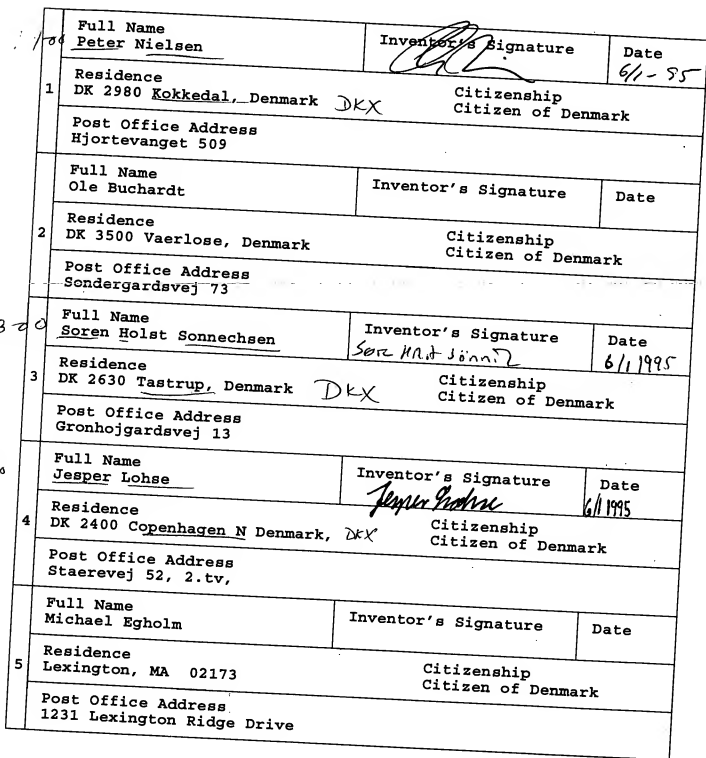 Full Name
Peter Nielsen
Inventor's Signature
Date
6/1-95
1
Residence
DK 2980 Kokkedal, Denmark DKX
Citizenship
Citizen of Denmark
Post Office Address
Hjortevanget 509
Full Name
Ole Buchardt
Inventor's Signature
Date
2
Residence
DK 3500 Vaerlose, Denmark
Citizenship
Citizen of Denmark
Post Office Address
Sondergardsvej 73
Full Name
Soren Holst Sonnechsen
Inventor's Signature
Date
6/1 1995
3
Residence
DK 2630 Tastrup, Denmark DKX
Citizenship
Citizen of Denmark
Post Office Address
Gronhojgardsvej 13
Full Name
Jesper Lohse
Inventor's Signature
Jesper Lohse
Date
6/1 1995
4
Residence
DK 2400 Copenhagen N Denmark, DKX
Citizenship
Citizen of Denmark
Post Office Address
Staerevej 52, 2.tv,
Full Name
Michael Egholm
Inventor's Signature
Date
5
Residence
Lexington, MA 02173
Citizenship
Citizen of Denmark
Post Office Address
1231 Lexington Ridge Drive